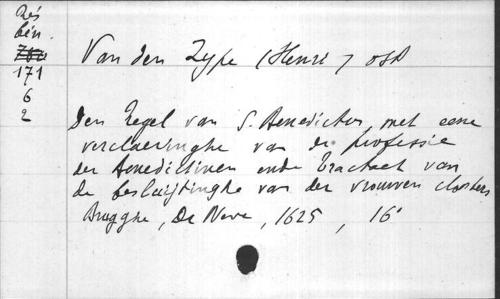 Rés
bén.
171
6
2
Van den Zype (Henri) OSB
Den Regel van S. Benedictus, met eene
verclaeringhe van de professie
der Benedictinen ende Tractaet van
de besluijtinghe van der vrouwen cloosters
Brugghe, De Neve, 1625, 16°